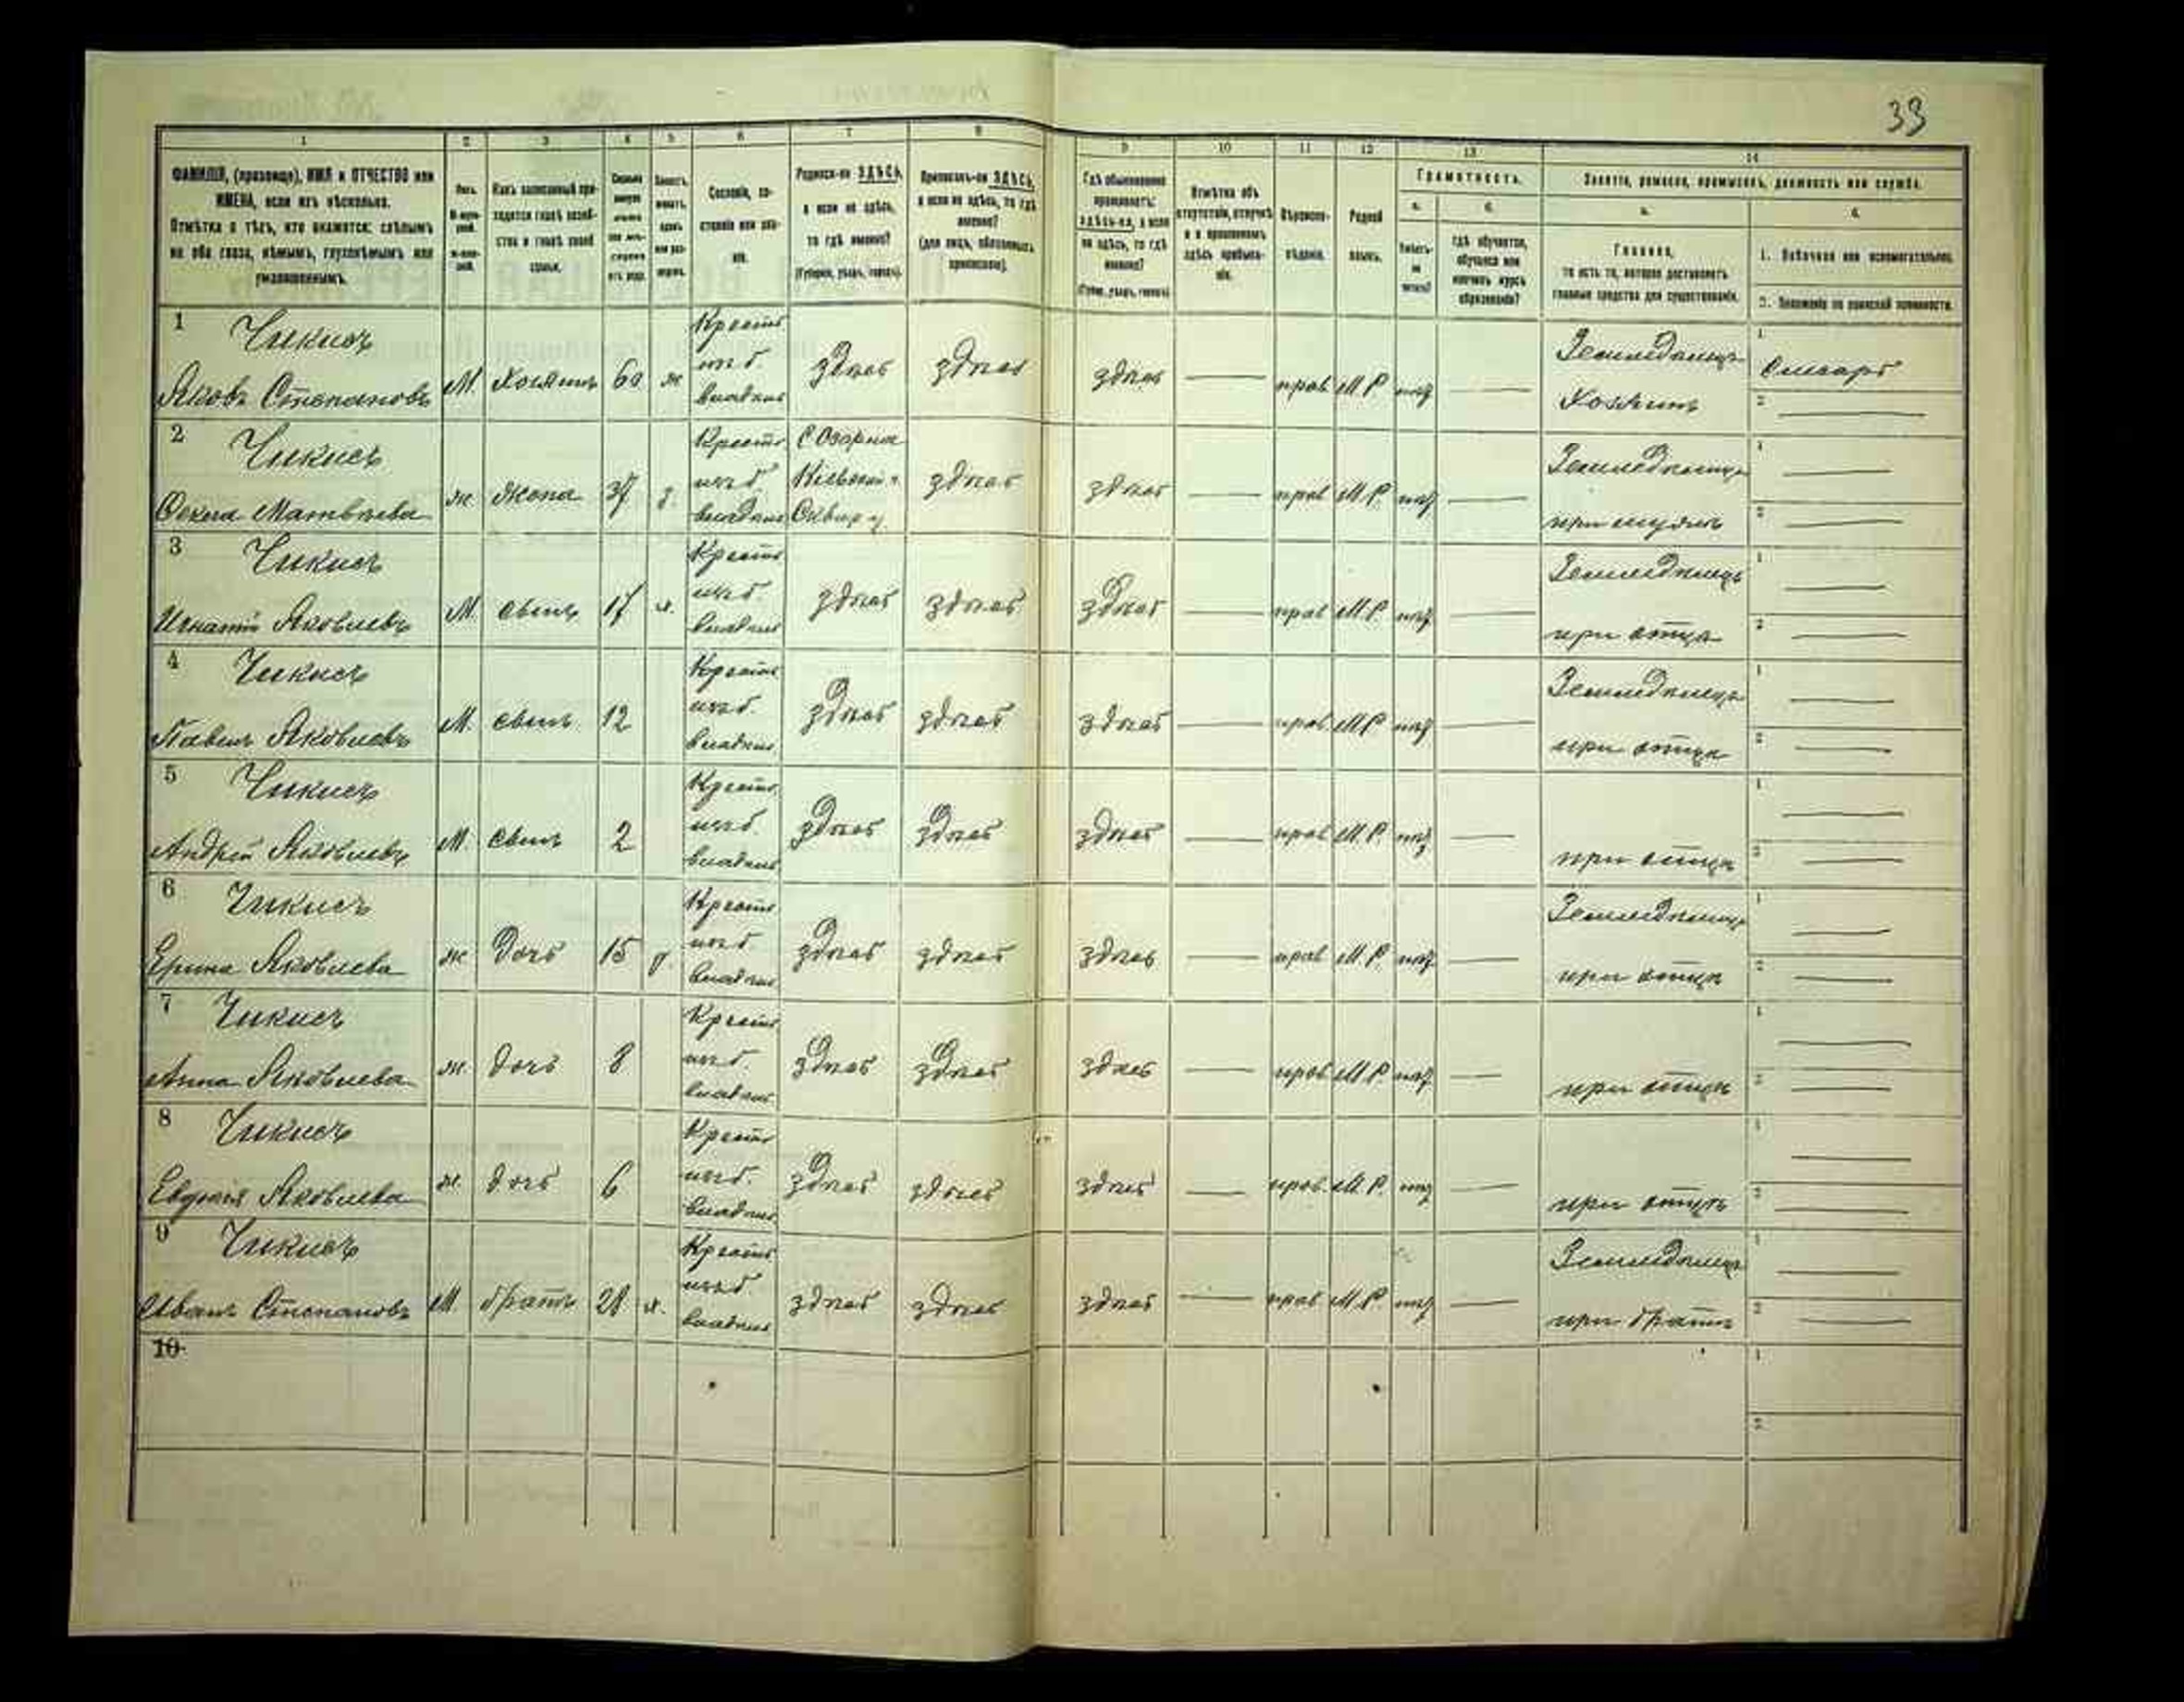 33
1 2 3 4 5 6 7 8 9 10 11 12 13 14
ФАМИЛІЯ, (прозвище), ИМЯ и ОТЧЕСТВО или
ИМЕНА, если ихъ нѣсколько.
Отмѣтка о тѣхъ, кто окажется: слѣпымъ
на оба глаза, нѣмымъ, глухонѣмымъ или
умалишеннымъ.
Полъ.
Какъ записанный при-
ходится главѣ хозяй-
ства и главѣ своей
семьи.
Сословіе, со-
стояніе или зва-
ніе.
Родился-ли ЗДѢСЬ,
а если не здѣсь,
то гдѣ именно?
(Губернія, уѣздъ, городъ).
Приписанъ-ли ЗДѢСЬ,
а если не здѣсь, то гдѣ
именно?
(для лицъ, обязанныхъ
припискою).
Гдѣ обыкновенно
проживаетъ:
здѣсь-ли, а если
не здѣсь, то гдѣ
именно?
(Губер., уѣздъ, городъ)
Отмѣтка объ
отсутствіи, отлучкѣ
и о временномъ
здѣсь пребыва-
ніи.
Вѣроиспо-
вѣданіе.
Родной
языкъ.
Грамотность.
а. б.
Умѣетъ-
ли
читать?
гдѣ обучается,
обучался или
кончилъ курсъ
образованія?
Занятіе, ремесло, промыселъ, должность или служба.
а. б.
Главное,
то есть то, которое доставляетъ
главныя средства для существованія.
1. Побочное или вспомогательное.
2. Положеніе по воинской повинности.
1 Чикисъ
Яковъ Степановъ М. Хозяинъ 60 ж Крест. изъ б. владѣл. здѣсь здѣсь здѣсь — прав. М.Р. нѣт — Земледѣлецъ Хозяинъ 1 2 —
2 Чикисъ
Матвѣева ж жена 37 з. Крест. изъ б. владѣл. Кіевской г. Сквир. у. здѣсь здѣсь — прав. М.Р. нѣт — Земледѣлецъ при мужѣ 1 — 2 —
3 Чикисъ
Игнатій Яковлевъ М. сынъ 17 х. Крест. изъ б. владѣл. здѣсь здѣсь здѣсь — прав. М.Р. нѣт — Земледѣлецъ при отцѣ 1 — 2 —
4 Чикисъ
Павелъ Яковлевъ М. сынъ 12 Крест. изъ б. владѣл. здѣсь здѣсь здѣсь — прав. М.Р. нѣт — Земледѣлецъ при отцѣ 1 — 2 —
5 Чикисъ
Андрей Яковлевъ М. сынъ 2 Крест. изъ б. владѣл. здѣсь здѣсь здѣсь — прав. М.Р. нѣт — при отцѣ 1 — 2 —
6 Чикисъ
Ерина Яковлева ж Дочь 15 Крест. изъ б. владѣл. здѣсь здѣсь здѣсь — прав. М.Р. нѣт — Земледѣлецъ при отцѣ 1 — 2 —
7 Чикисъ
Анна Яковлева ж. дочь 8 Крест. изъ б. владѣл. здѣсь здѣсь здѣсь — прав. М.Р. нѣт — при отцѣ 1 — 2 —
8 Чикисъ
Евдокія Яковлева ж. дочь 6 Крест. изъ б. владѣл. здѣсь здѣсь здѣсь — прав. М.Р. нѣт — при отцѣ 1 — 2 —
9 Чикисъ
Иванъ Степановъ М. братъ х. Крест. изъ б. владѣл. здѣсь здѣсь здѣсь — прав. М.Р. нѣт — Земледѣлецъ при братѣ 1 — 2 —
10
1
2